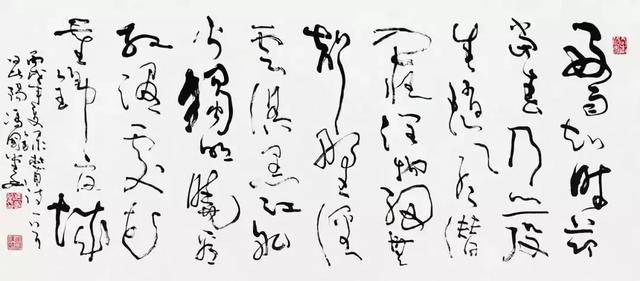 好雨知時節
當春乃發
生隨風潛
入夜潤物細無
聲野徑
雲俱黑江船
火獨明曉看
紅濕處花
重錦官城
丙戌年夏杜甫詩一首
馮國